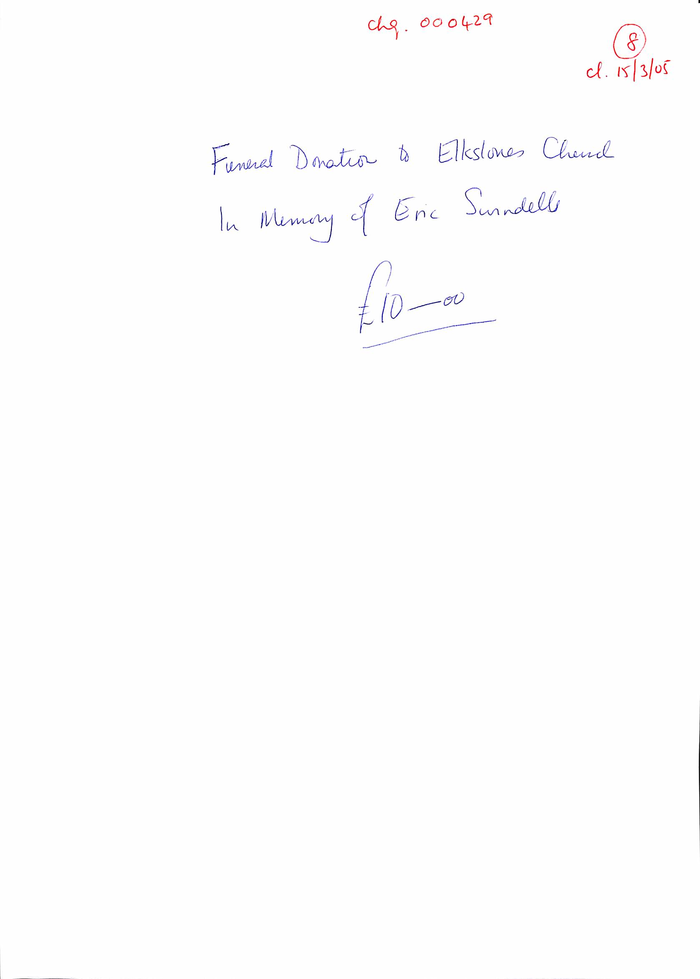 chq. 000429
8
cl. 15/3/05
Funeral Donation to Elkstones Church
In Memory of Eric Swindells
£10—00